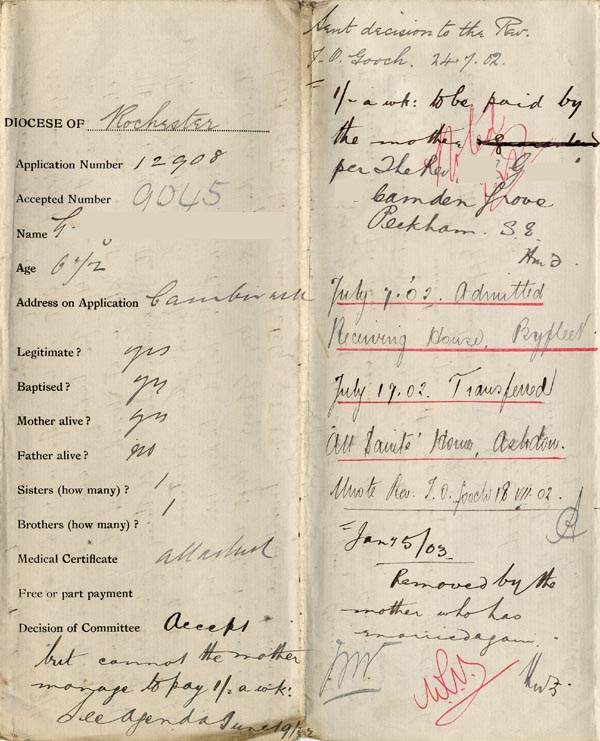 DIOCESE OF Rochester
Application Number 12908
Accepted Number 9045
Name G
Age 6 9/12
Address on Application Camberwell
Legitimate? yes
Baptised? yes
Mother alive? yes
Father alive? no
Sisters (how many)? 1
Brothers (how many)? 1
Medical Certificate attached
Free or part payment
Decision of Committee Accept
but cannot the mother
manage to pay 1/- a wk:
See Agenda June 19/02
Sent decision to the Rev.
T. O. Gooch. 24.7.02.
1/- a wk: to be paid by
the mother
Noted
per The Rev. G
Camden Grove
Peckham. S.E.
July 7.'02. Admitted
Receiving House, Byfleet.
July 17.02. Transferred
All Saints' Home, Ashdon.
Wrote Rev. T. O. Gooch 18.VII.02.
Jany 5/03
Removed by the
mother who has
married again.